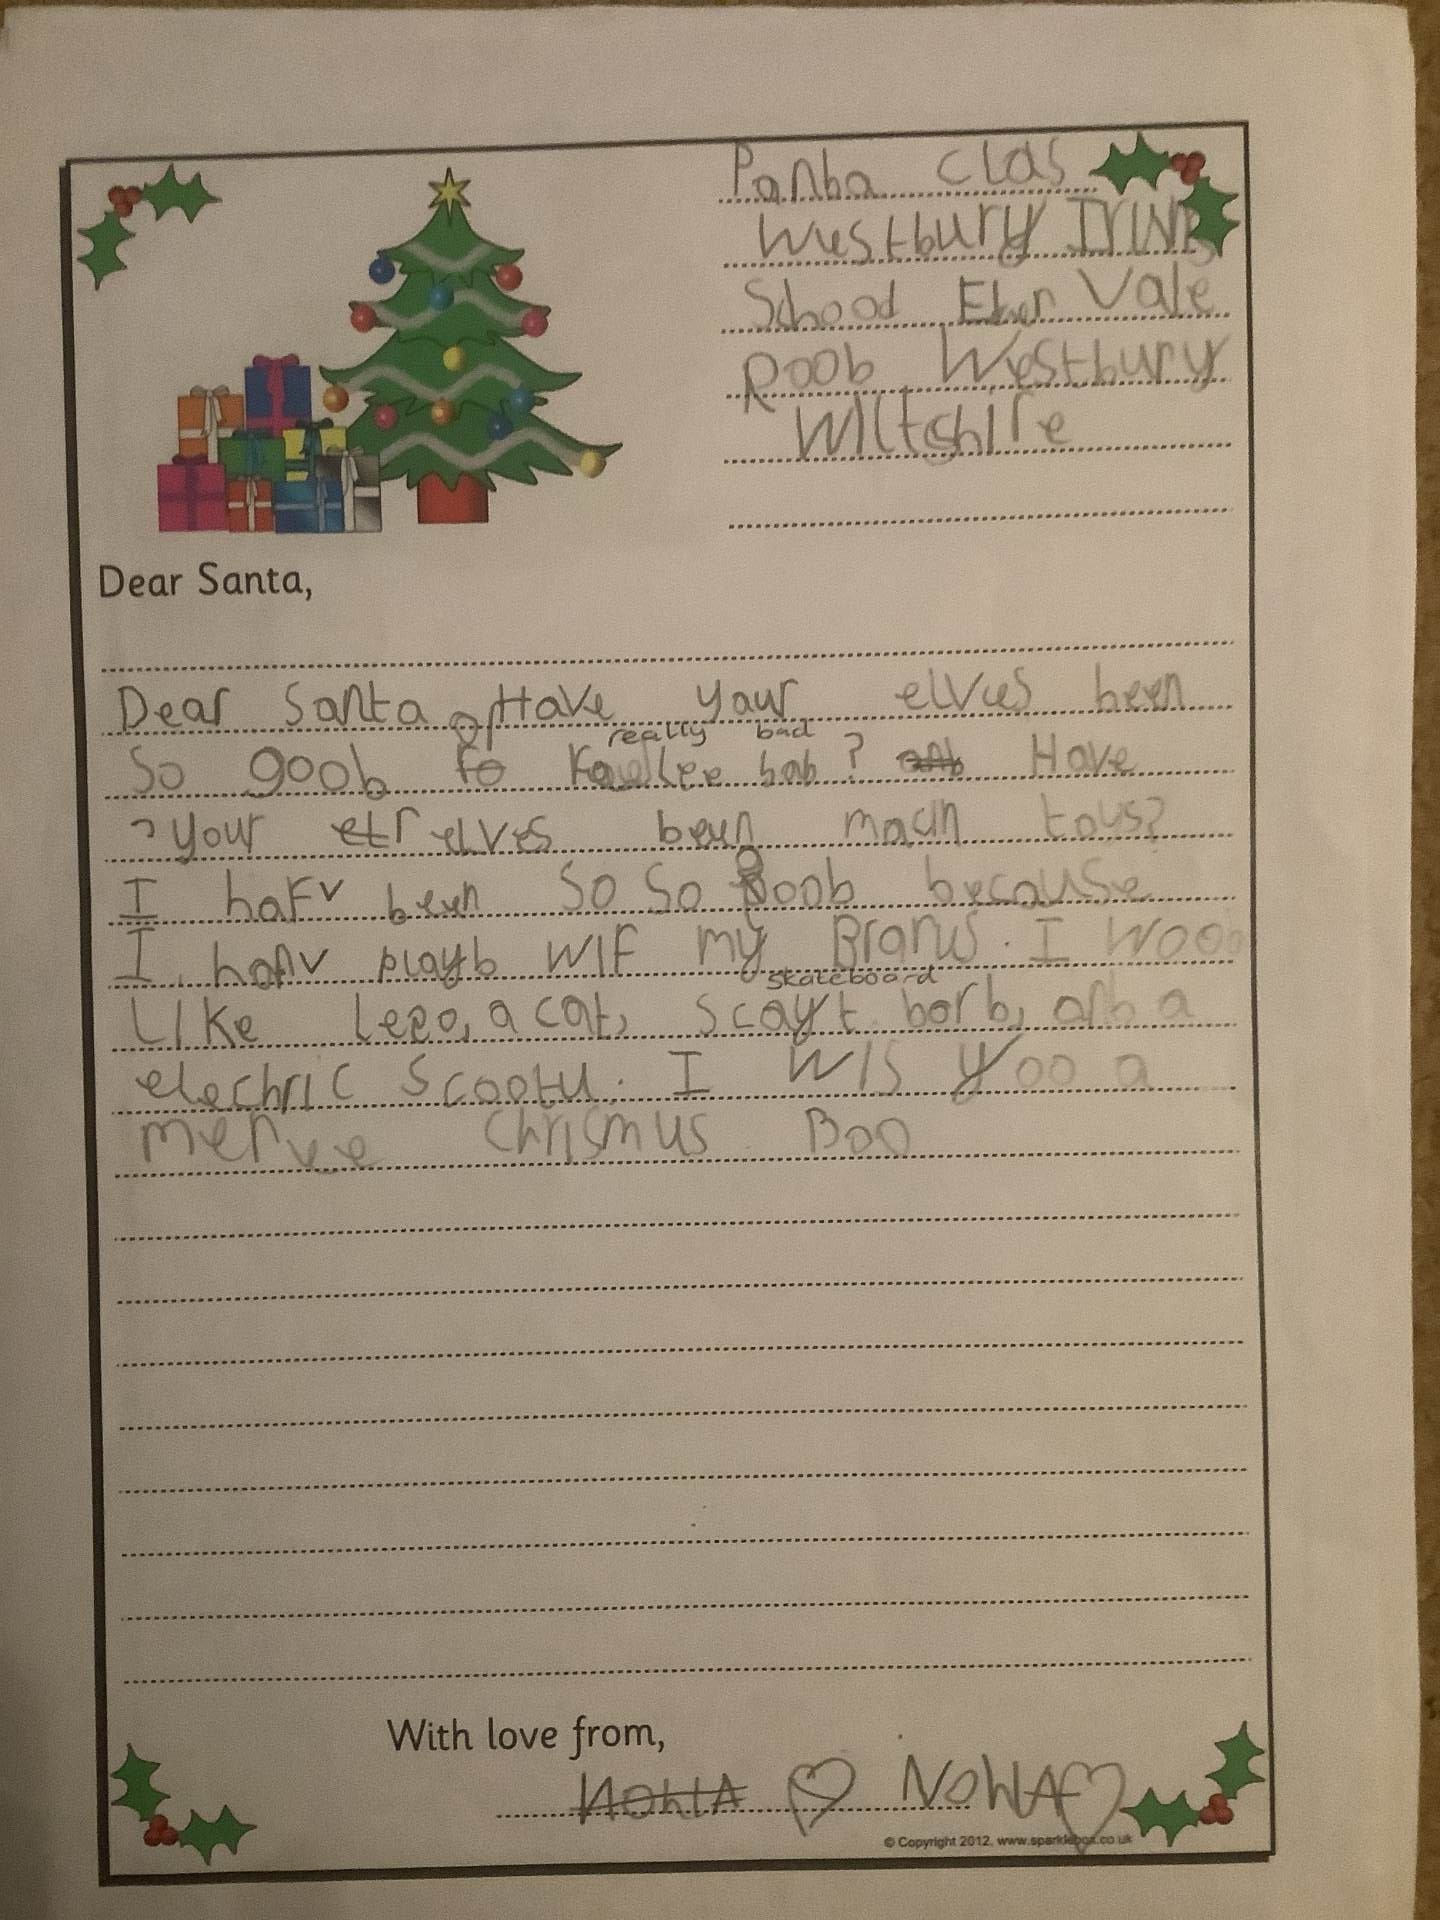 Panba clas
Westbury
School Vale
Roob Westbury
Wiltshire
Dear Santa,
Dear Santa Have your elves been
really bad
So goob or bab? Have
your elves been macin toys?
I hafv been So So goob because
I hanv playb wif my I woob
skateboard
Like lego, a cat, scayt borb, anb a
electhric Scootu. I wis yoo a
mervee Chrismus Boo
With love from,
NOHIA NOHIA
© Copyright 2012, www.sparklebox.co.uk